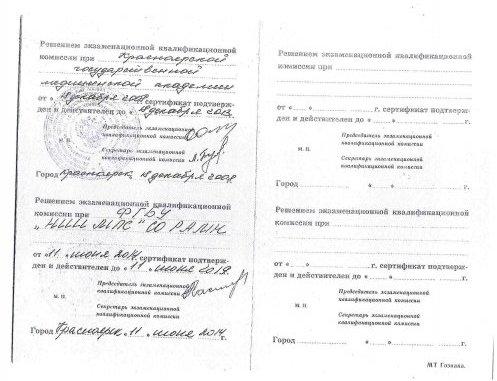 Решением экзаменационной квалификационной
комиссии при Красноярской
государственной
медицинской академии
от « 18 декабря 2008 сертификат подтверж-
ден и действителен до « 18 декабря 2013.
Председатель экзаменационной
квалификационной комиссии
М. П.
Секретарь экзаменационной
квалификационной комиссии
Город Красноярск 18 декабря 2008
Решением экзаменационной квалификационной
комиссии при ФГБУ
„НИИ МПС" СО РАМН
от « 11 » июня 2014 сертификат подтверж-
ден и действителен до « 11 » июня 2019.
Председатель экзаменационной
квалификационной комиссии
М. П.
Секретарь экзаменационной
квалификационной комиссии
Город Красноярск. 11 . июня 2014 г.
Решением экзаменационной квалификационной
комиссии при
от « » г. сертификат подтверж-
ден и действителен до « » г.
Председатель экзаменационной
квалификационной комиссии
М. П.
Секретарь экзаменационной
квалификационной комиссии
Город « » г.
Решением экзаменационной квалификационной
комиссии при
от « » г. сертификат подтверж-
ден и действителен до « » г.
Председатель экзаменационной
квалификационной комиссии
М. П.
Секретарь экзаменационной
квалификационной комиссии
Город « » г.
МТ Гознака.